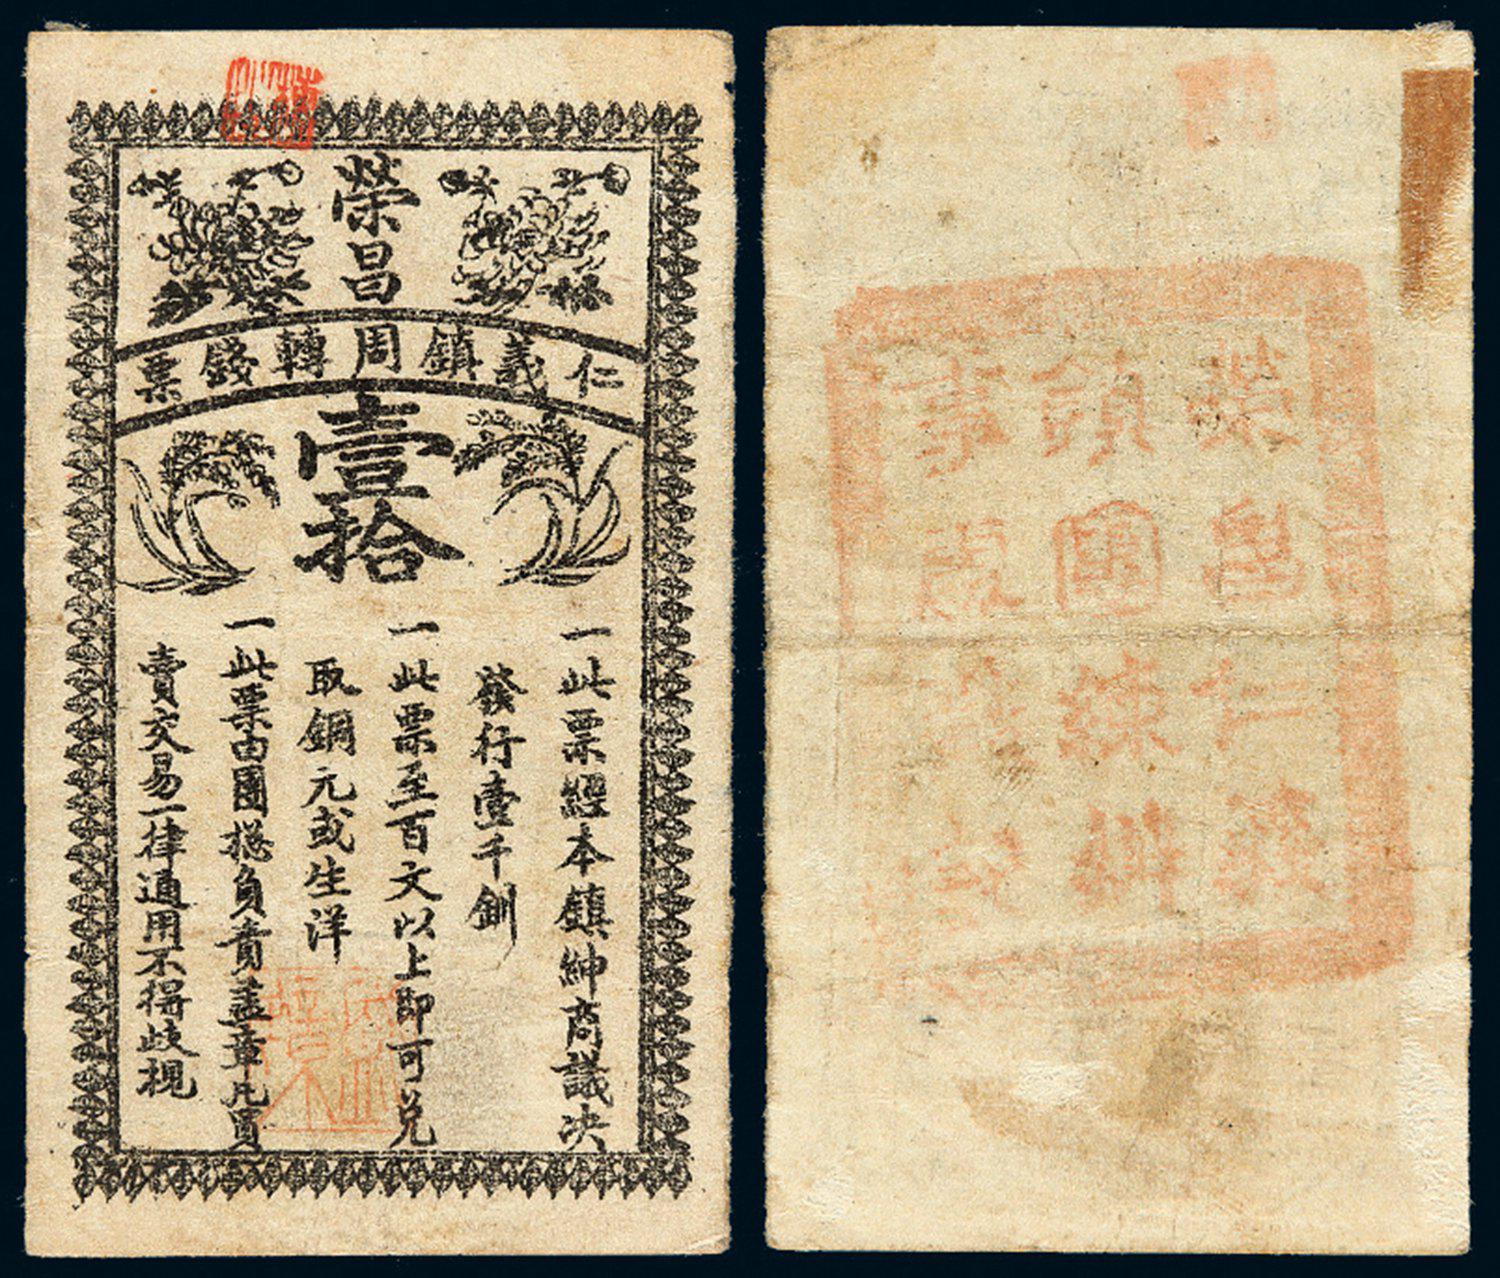 榮昌
仁義鎮周轉錢票
壹拾
一此票經本鎮紳商議决
發行壹千釧
一此票至百文以上即可兑
取銅元或生洋
一此票由團揔負責盖章凡買
賣交易一律通用不得歧視
榮昌仁義
鎮團練辦
事處